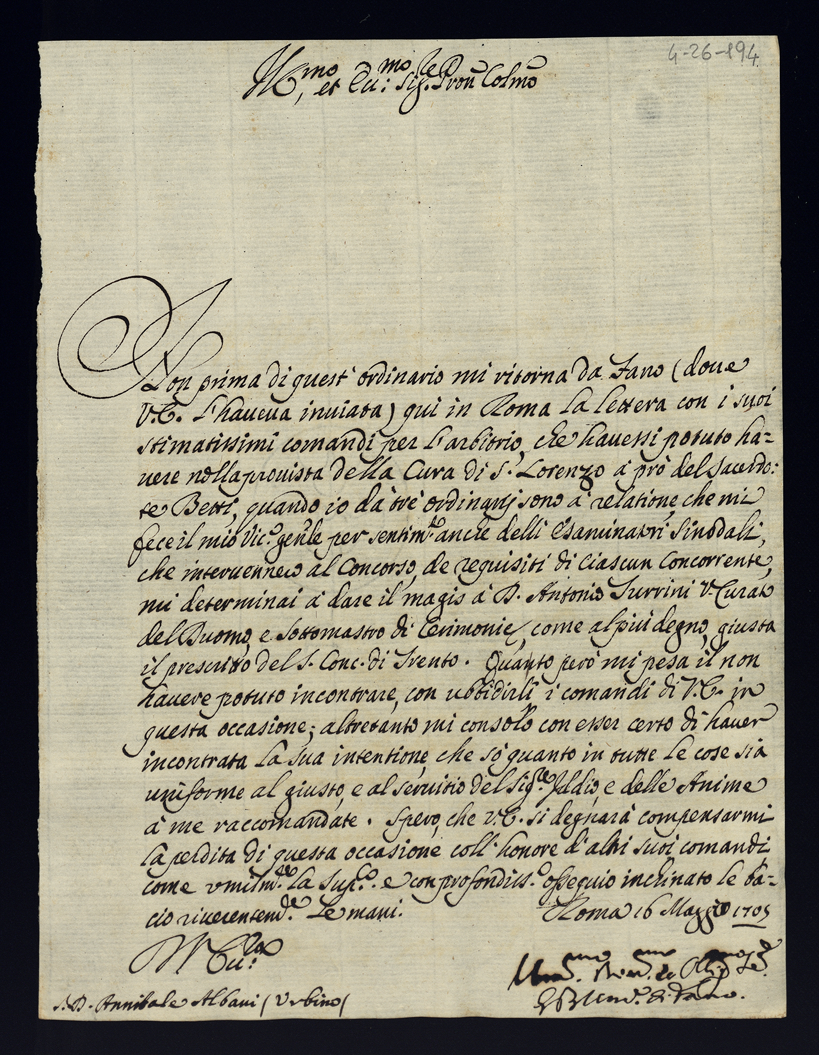 4-26-194
Ill.mo, et Ecc.mo Sig.re Pron Colmo
Non prima di quest' ordinario mi ritorna da Fano (doue
V.E. l'haueua inuiata) qui in Roma la lettera con i suoi
stimatissimi comandi per l'arbitrio, che hauessi potuto ha-
uere nella prouista della Cura di S. Lorenzo à prò del Sacerdo:
te Betti, quando io da tre ordinarij sono à relatione che mi
fece il mio Vic.o gen.le per sentim.to anche delli Esaminatori Sinodali,
che interuennero al Concorso, de requisiti di ciascun Concorrente,
mi determinai à dare il magis à D. Antonio V. Curato
del Duomo, e Sottomastro di Cerimonie, come al più degno, giusta
il prescritto del S. Conc. di Trento. Quanto però mi pesa il non
hauere potuto incontrare, con ubbidirli i comandi di V.E. in
questa occasione; altretanto mi consolo con esser certo di hauer
incontrata la sua intentione, che sò quanto in tutte le cose sia
uniforme al giusto, e al seruitio del Sig.re Iddio, e delle Anime
à me raccomandate. Spero, che V.E. si degnarà compensarmi
la perdita di questa occasione coll' honore d'altri suoi comandi
come vmilm.te la sup.co. e con profondiss.o ossequio inchinato le ba-
cio riuerentem.te le mani. Roma 16 Maggio 1705
V. Ecc.za
S. D. Annibale Albani (Urbino)
di Fano.